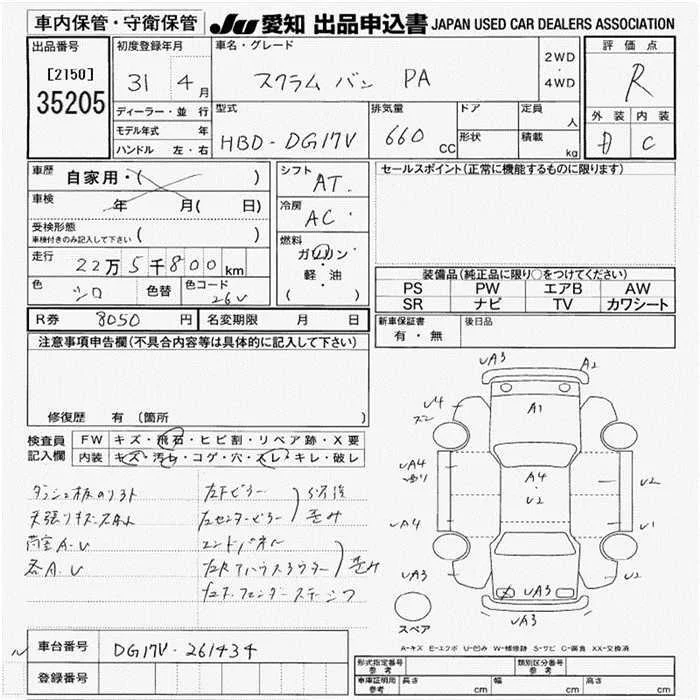 車内保管・守衛保管
JU 愛知 出品申込書 JAPAN USED CAR DEALERS ASSOCIATION
出品番号
[2150]
35205
初度登録年月
31 4月
ディーラー・並 行
モデル年式 年
ハンドル 左・右
車名・グレード
スクラム バン PA
2WD
・
4WD
型式
HBD-DG17V
排気量
660 CC
ドア
形状
定員
人
積載
kg
評 価 点
R
外 装 内 装
D C
車歴
自家用・( )
車検
年 月( 日)
受検形態
車検付きのみ記入して下さい ( )
走行
22万5千800km
色
シロ
色替
色コード
26V
シフト
AT
冷房
AC
燃料
ガソリン
・
軽・油
( )
セールスポイント(正常に機能するものに限ります)
装備品(純正品に限り○をつけてください)
PS PW エアB AW
SR ナビ TV カワシート
新車保証書
有・無
後日品
R券 8050 円
名変期限 月 日
注意事項申告欄(不具合内容等は具体的に記入して下さい)
修復歴 有 (箇所 )
検査員
記入欄
FW キズ・飛石・ヒビ割・リペア跡・X要
内装 キズ・汚れ・コゲ・穴・スレ・キレ・破レ
天張りキズ
荷室A.U
各A.U
左センターピラー
エンドパネル
歪み
歪み
UA3 A2
U4
A1
UA4
A4
U2
U2
UA4
U1
UA3
UA3
U2
UA3
スペア
A-キズ E-エクボ U-凹み W-補修跡 S-サビ C-腐食 XX-交換済
車台番号 DG17V-261434
登録番号
形式指定番号
参考
類別区分番号
参考
車庫証明用
参考
長さ cm 幅 cm 高さ cm